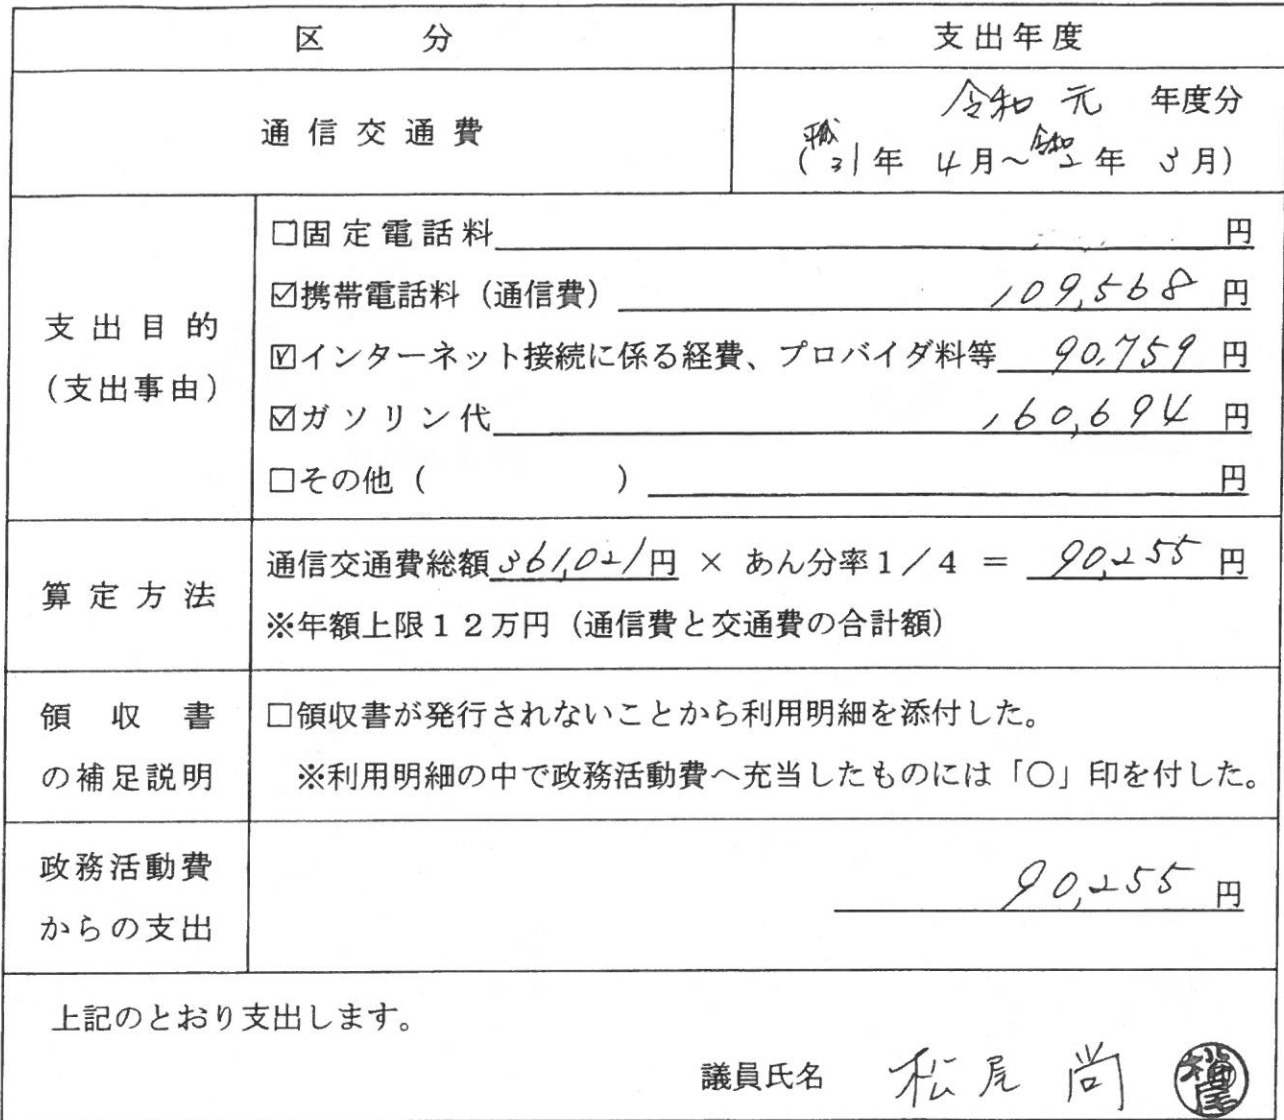 区 分 支出年度
通信交通費 令和 元 年度分
(平成31年 4月～令和2年 3月)
支出目的
(支出事由)
□固定電話料 円
☑携帯電話料（通信費） 109,568 円
☑インターネット接続に係る経費、プロバイダ料等 90,759 円
☑ガソリン代 160,694 円
□その他（ ） 円
算定方法
通信交通費総額361,021円 × あん分率1／4 ＝ 90,255 円
※年額上限12万円（通信費と交通費の合計額）
領収書
の補足説明
□領収書が発行されないことから利用明細を添付した。
※利用明細の中で政務活動費へ充当したものには「○」印を付した。
政務活動費
からの支出
90,255 円
上記のとおり支出します。
議員氏名 松尾 尚
松尾